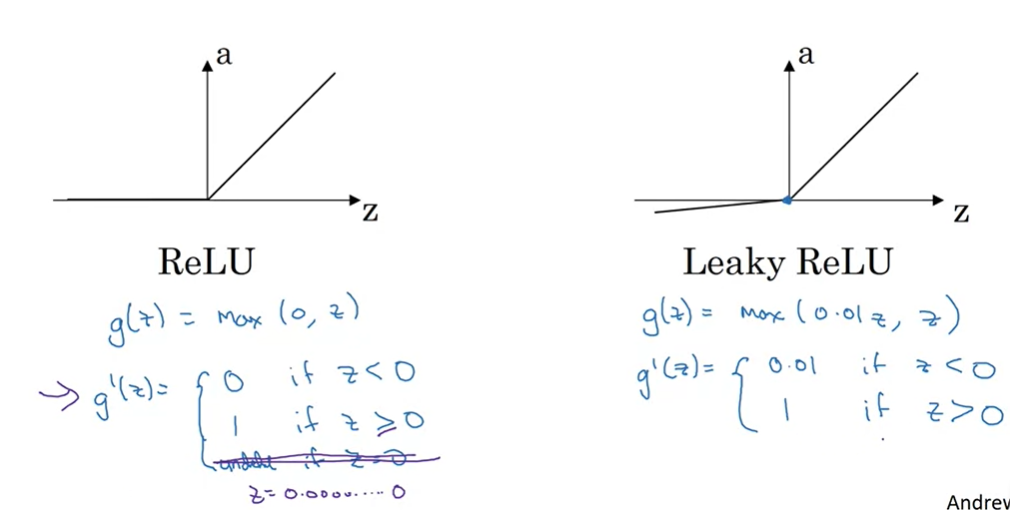 a
z
ReLU
g(z) = max (0, z)
→ g'(z) = { 0 if z < 0
1 if z ≥ 0
if z = 0
z = 0.0000.....0
a
z
Leaky ReLU
g(z) = max (0.01z, z)
g'(z) = { 0.01 if z < 0
1 if z > 0
Andrew